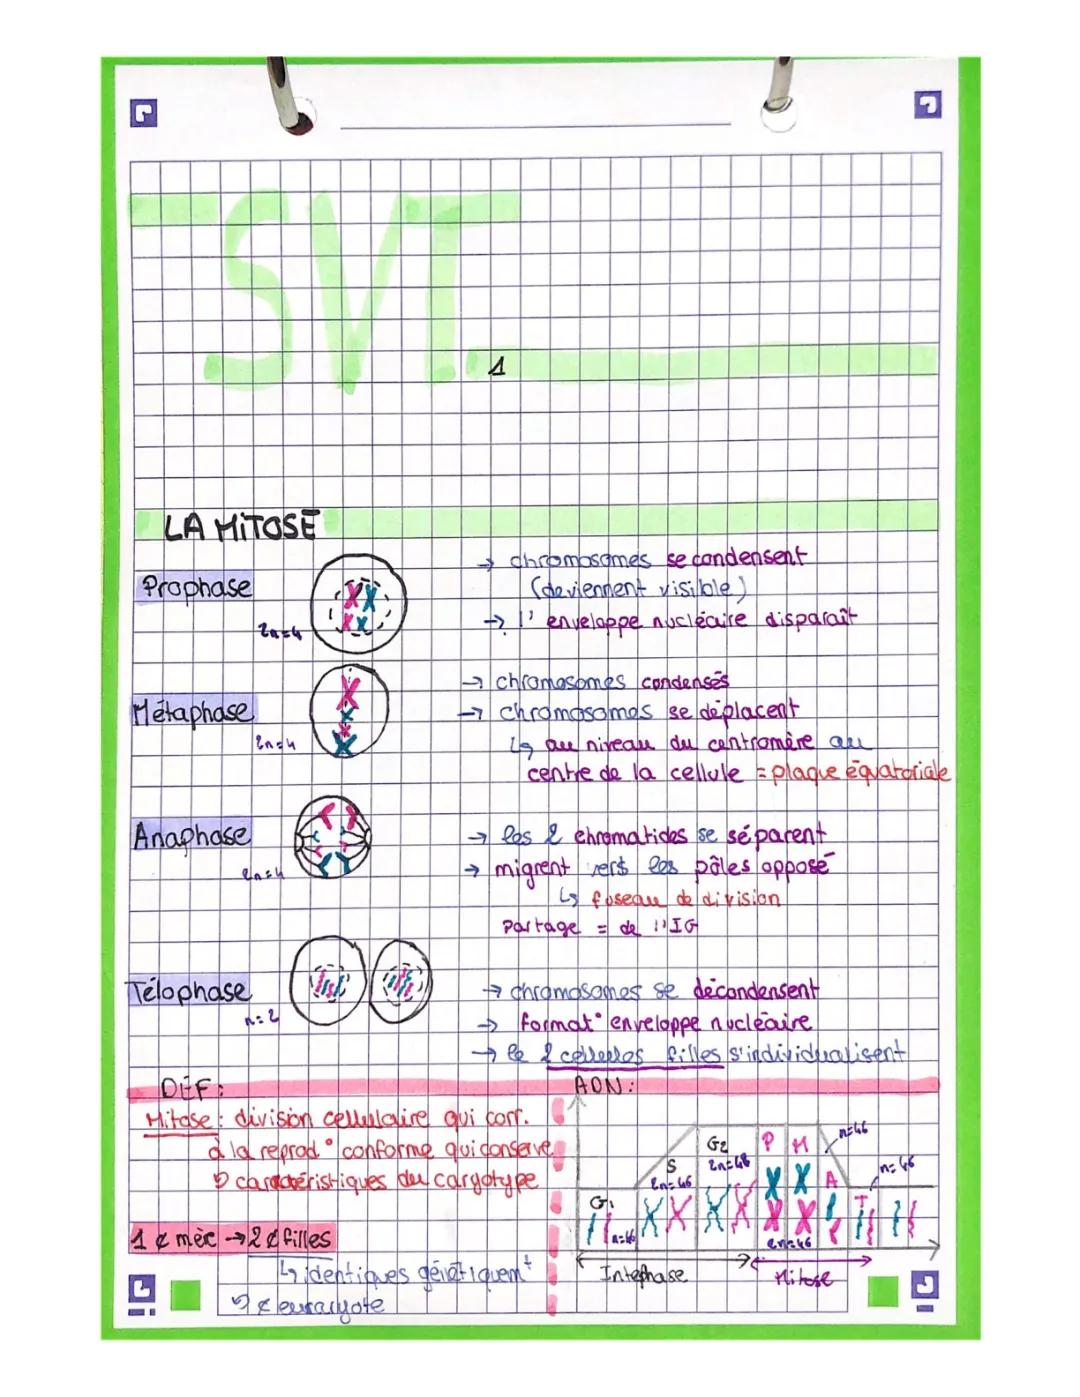 SVT
1
LA MITOSE
Prophase
2n=4
→ chromosomes se condensent
(deviennent visible)
→ l' enveloppe nucléaire disparaît
Métaphase
2n=4
→ chromosomes condensés
→ chromosomes se déplacent
↳ au niveau du centromère au
centre de la cellule = plaque équatoriale
Anaphase
2n=4
→ les 2 chromatides se séparent
→ migrent vers les pôles opposé
↳ fuseau de division
Partage = de l'IG
Télophase
n=2
→ chromosomes se décondensent
→ format° enveloppe nucléaire
→ le 2 cellules filles s'individualisent
DÉF:
Mitose : division cellulaire qui corr.
à la reprod° conforme qui conserve
caractéristiques du caryotype
1 ¢ mère → 2 ¢ filles
↳ identiques génétiquemt
¢ eucaryote
ADN:
G1
n=46
S
2n=46
G2
P
M
2n=46
n=46
A
T
n=46
Intephase
Mitose